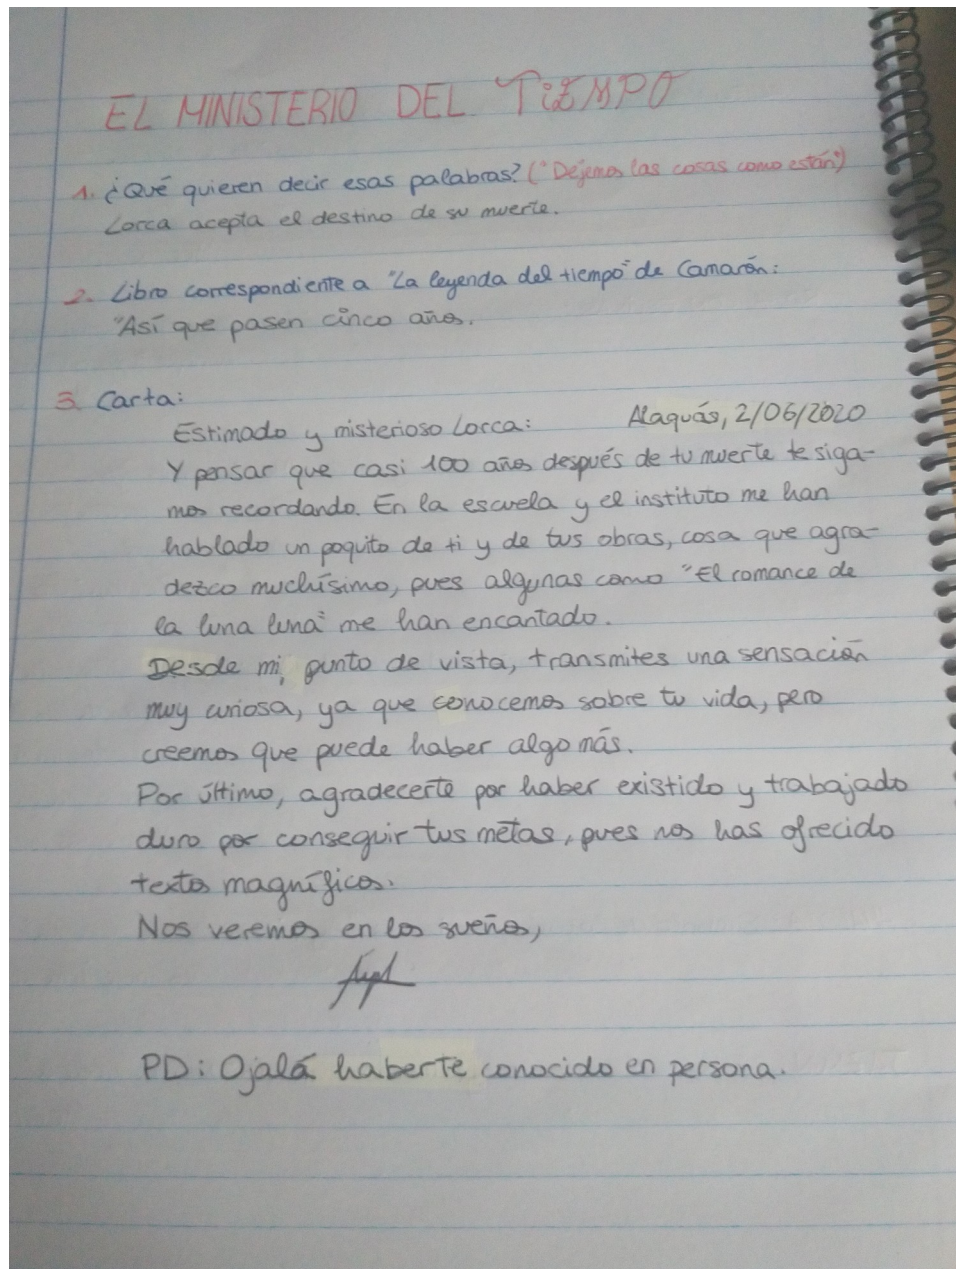 EL MINISTERIO DEL TiEMPO
1. ¿Qué quieren decir esas palabras? ("Dejemos las cosas como están")
Lorca acepta el destino de su muerte.
2. Libro correspondiente a "La leyenda del tiempo" de Camarón:
"Así que pasen cinco años.
3. Carta:
Estimado y misterioso Lorca: Alaquás, 2/06/2020
Y pensar que casi 100 años después de tu muerte te siga-
mos recordando. En la escuela y el instituto me han
hablado un poquito de ti y de tus obras, cosa que agra-
dezco muchísimo, pues algunas como "El romance de
la luna luna" me han encantado.
Desde mi punto de vista, transmites una sensación
muy curiosa, ya que conocemos sobre tu vida, pero
creemos que puede haber algo más.
Por último, agradecerte por haber existido y trabajado
duro por conseguir tus metas, pues nos has ofrecido
textos magníficos.
Nos veremos en los sueños,
PD: Ojalá haberte conocido en persona.